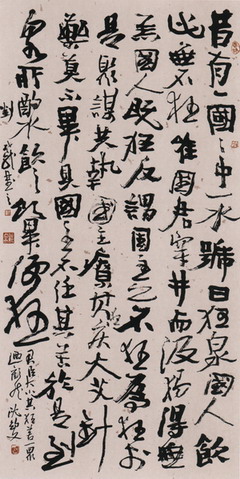 昔有一國〻中一水號曰狂泉國人飲
此無不狂唯國君穿井而汲獨得無
恙國人既狂反謂國主之不狂為狂於
是聚謀共執國主療其疾火艾針
藥莫不畢具國主不任其苦於是到
泉所酌水飲之飲畢便狂